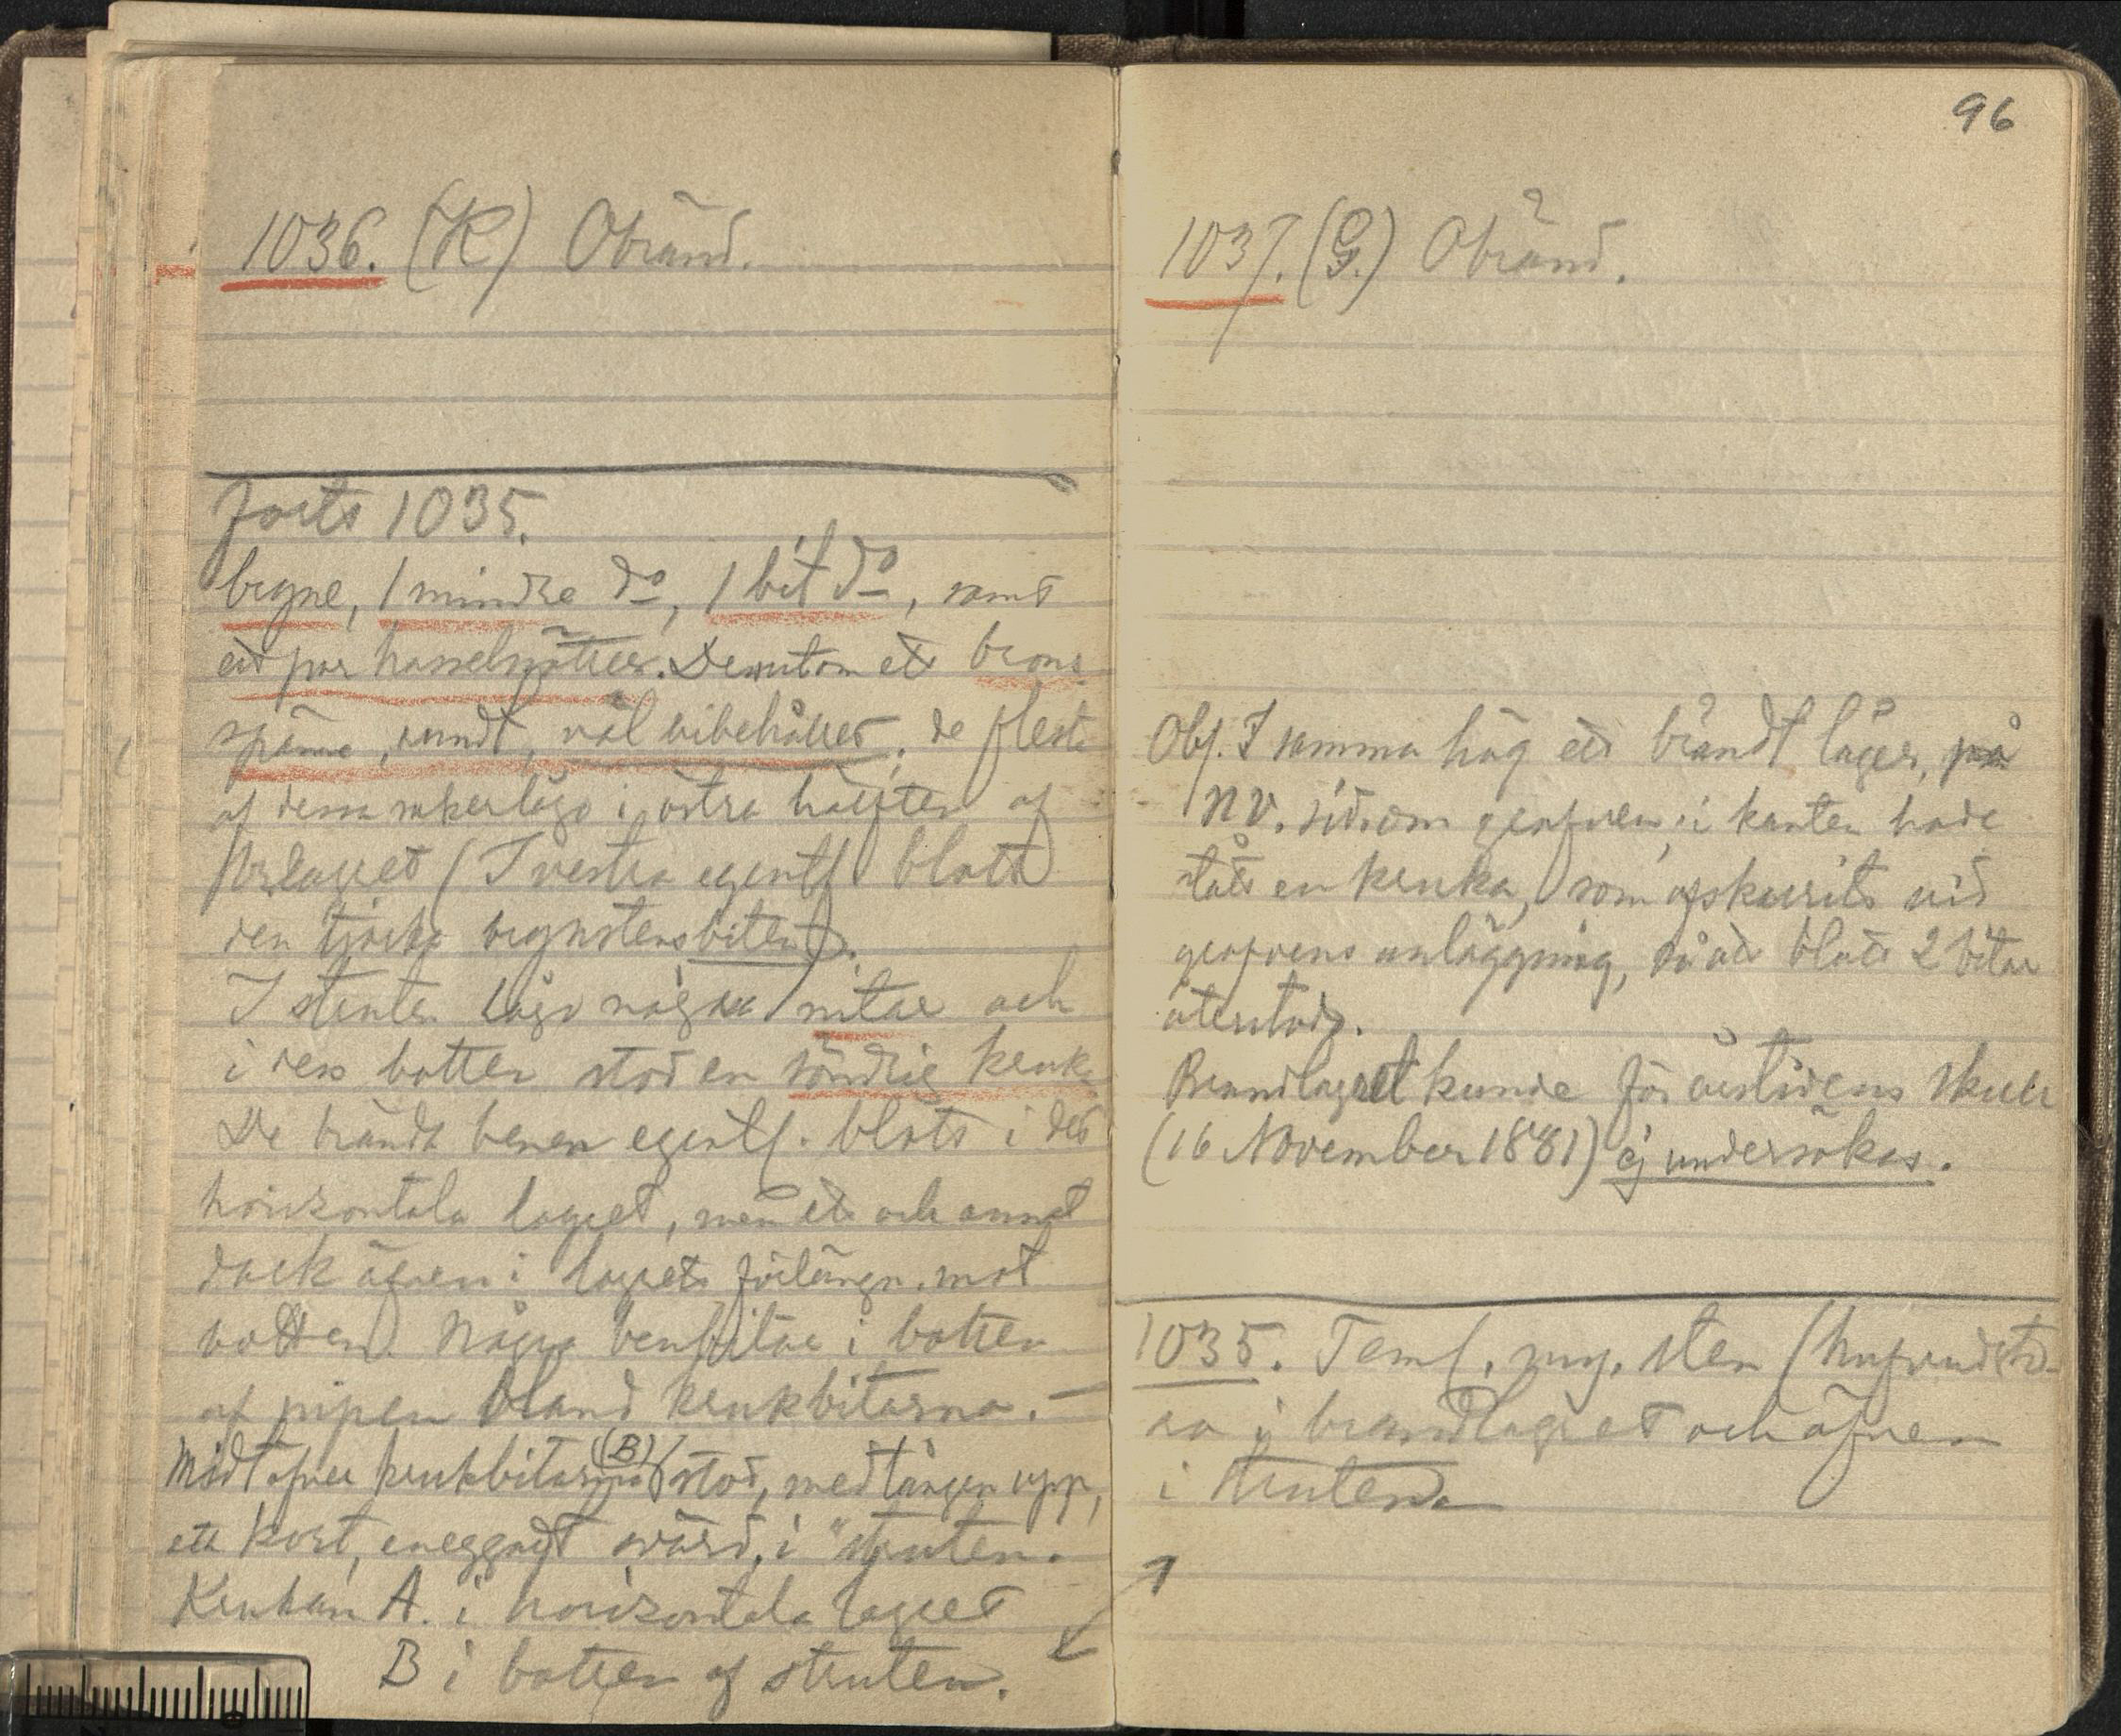 1036. (K) Obränd.
Forts 1035.
bryne, 1 mindre do, 1 bit do, samt
ett par hasselnötter. Dessutom ett brons
spänne, rundt, väl bibehållet, de flesta
af dessa saker lågo i östra hälften af
lagret (I vestra egentl. blott
den tjocka brynstensbiten).
I struten lågo några nitar och
i dess botten stod en söndrig kruka
De brända benen egentl. blott i det
horizontala lagret, men ett och annat
dock äfven i lagrets förlängn. mot
botten. Några benbitar i botten
af pipen bland krukbitarna. —
Midt öfver krukbitarna (B) stod, med tången upp,
ett kort, eneggadt svärd, i "struten.
Krukan A. i horizontala lagret
B i botten af struten.
96
1037. (G.) Obränd.
Obs. I samma hög ett brändt lager, på
NV. sidan om grafven, i kanten hade
stått en kruka, som afskurits vid
grafvens anläggning, så att blott 2 bitar
återstodo.
Brandlagret kunde för årstidens skull
(16 November 1881) ej undersökas.
1035. Teml. myc. sten (hufvudstora
i brandlagret och äfven
i struten